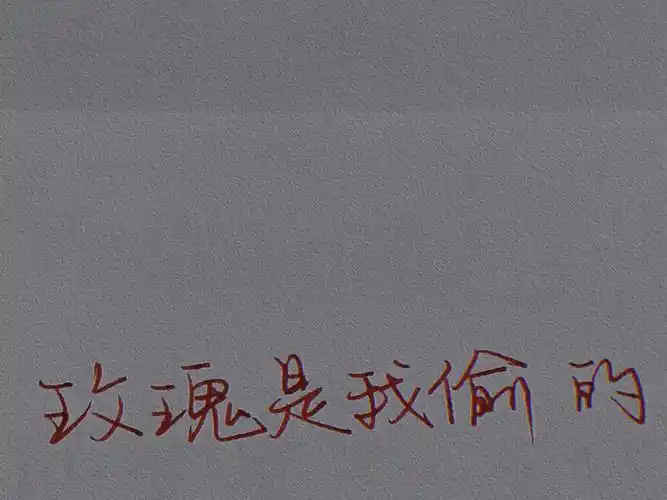 玫瑰是我偷的